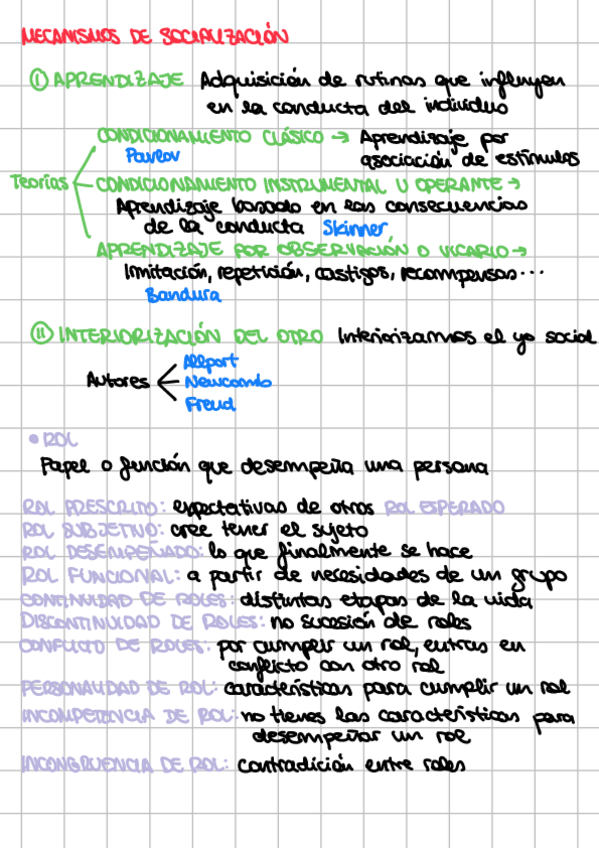 MECANISMOS DE SOCIALIZACIÓN
I APRENDIZAJE Adquisición de rutinas que influyen
en la conducta del individuo
CONDICIONAMIENTO CLÁSICO → Aprendizaje por
Pavlov asociación de estímulos
Teorías CONDICIONAMIENTO INSTRUMENTAL U OPERANTE →
Aprendizaje basado en las consecuencias
de la conducta Skinner
APRENDIZAJE POR OBSERVACIÓN O VICARIO →
Imitación, repetición, castigos, recompensas...
Bandura
II INTERIORIZACIÓN DEL OTRO Interiorizamos el yo social
Allport
Autores Newcombo
Freud
• ROL
Papel o función que desempeña una persona
ROL PRESCRITO: expectativas de otros ROL ESPERADO
ROL SUBJETIVO: cree tener el sujeto
ROL DESEMPEÑADO: lo que finalmente se hace
ROL FUNCIONAL: a partir de necesidades de un grupo
CONTINUIDAD DE ROLES: distintas etapas de la vida
DISCONTINUIDAD DE ROLES: no sucesión de roles
CONFLICTO DE ROLES: por cumplir un rol, entras en
conflicto con otro rol
PERSONALIDAD DE ROL: características para cumplir un rol
INCOMPETENCIA DE ROL: no tienes las características para
desempeñar un rol
INCONGRUENCIA DE ROL: contradición entre roles